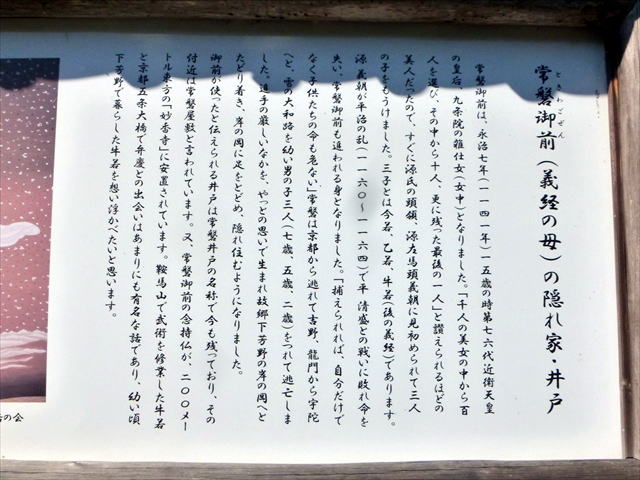 ときわごぜん
常磐御前(義経の母)の隠れ家・井戸
常磐御前は、永治七年(一一四一年)一五歳の時第七六代近衛天皇
の皇后、九条院の雑仕女(女中)となりました。「千人の美女の中から百
人を選び、その中から十人、更に残った最後の一人」と讃えられるほどの
美人だったので、すぐに源氏の頭領、源左馬頭義朝に見初められて三人
の子をもうけました。三子とは今若、乙若、牛若(後の義経)であります。
源義朝が平治の乱(一一六〇〜一一六四)で平清盛との戦いに敗れ命を
失い、常磐御前も追われる身となりました。「捕えられれば、自分だけで
なく子供たちの命も危ない」常磐は京都から逃れて吉野、龍門から宇陀
へと、雪の大和路を幼い男の子三人(七歳、五歳、二歳)をつれて逃亡しま
した。追手の厳しいなかを、やっとの思いで生まれ故郷下芳野の岸の岡へと
たどり着き、岸の岡に足をとどめ、隠れ住むようになりました。
御前が使ったと伝えられる井戸は常磐井戸の名称で今も残っており、その
付近は常磐屋敷と言われています。又、常磐御前の念持仏が、二〇〇メー
トル東方の「妙香寺」に安置されています。鞍馬山で武術を修業した牛若
と京都五条大橋で弁慶との出会いはあまりにも有名な話であり、幼い頃
下芳野で暮らした牛若を想い浮かべたいと思います。
の会